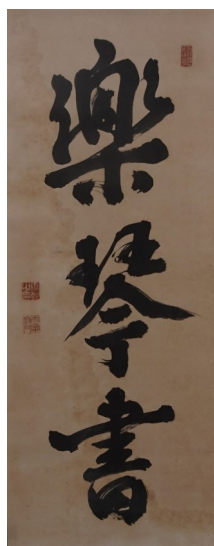 樂琴書